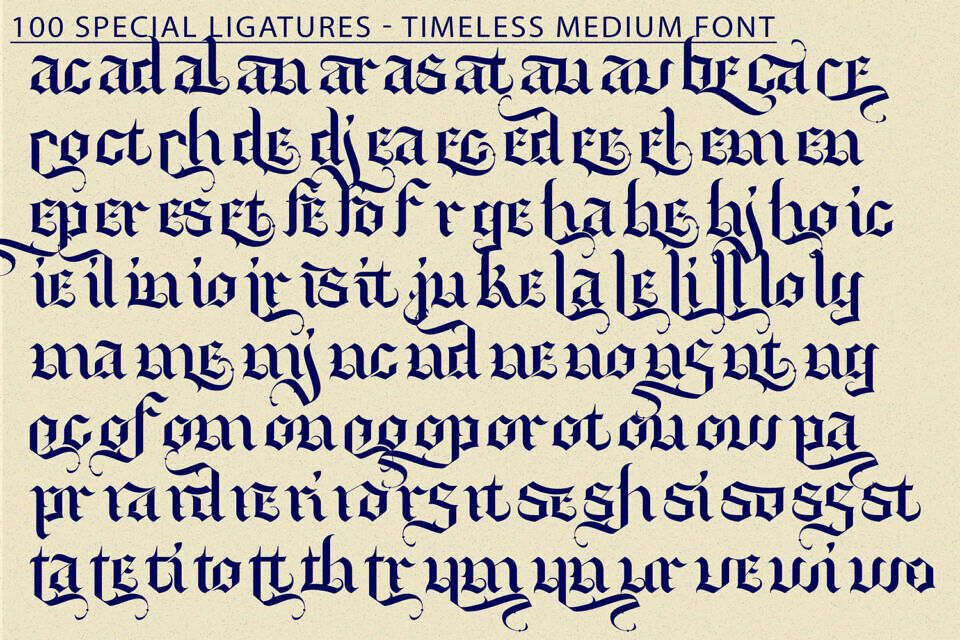 100 SPECIAL LIGATURES - TIMELESS MEDIUM FONT
ac ad al am ar as at au av be ca ce
co ct ch de dj ea ec ed ee el em en
ep er es et fe fo f r ge ha he hj ho ic
ie il in io ir is it ju ke la le li ll lo ly
ma me mj nc nd ne no ns nt ng
oc of om on oo op or ot ou ow pa
pr ra rd re ri ro rs rt se sh si so ss st
ta te ti to tt th tr um un ur ve vi wo